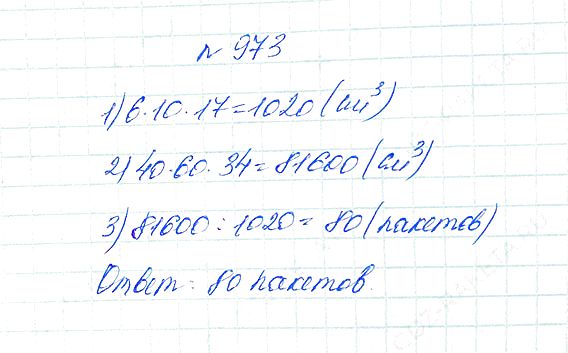 № 973
1) 6·10·17=1020 (см³)
2) 40·60·34=81600 (см³)
3) 81600:1020=80 (пакетов)
Ответ: 80 пакетов.